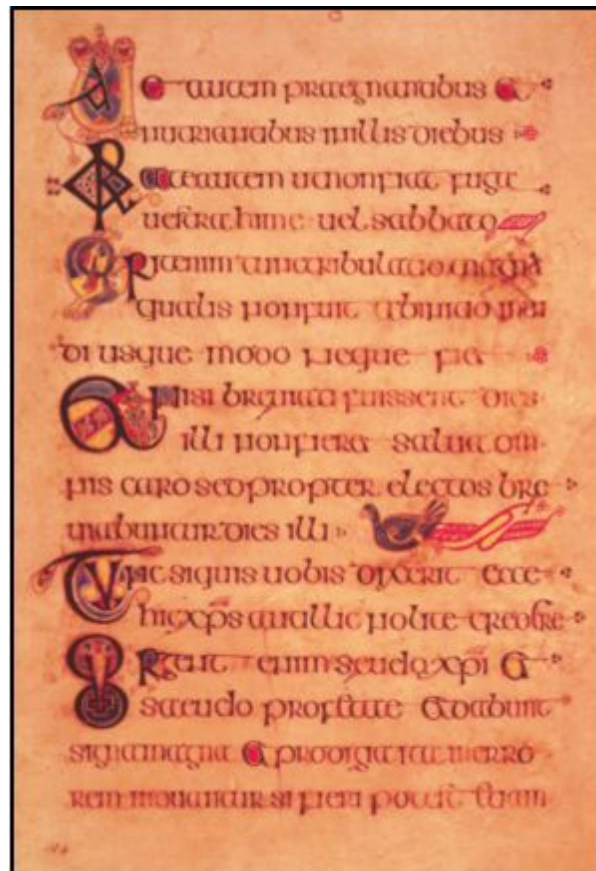 Uae autem praegnantibus et
nutrientibus in illis diebus
Orate autem ut non fiat fuga
uestra hime uel sabbato
Erit enim tunc tribulatio magna
qualis non fuit ab initio mun
di usque modo neque fiet
Et nisi breuiati fuissent dies
illi non fieret salua om
nis caro sed propter electos bre
uiabuntur dies illi
Tunc si quis uobis dixerit ecce
hic xps aut illic nolite credere
Surgent enim seudo xpi et
saeudo profetae et dabunt
signa magna et prodigia ita ut in erro
rem moueantur si fieri potest etiam